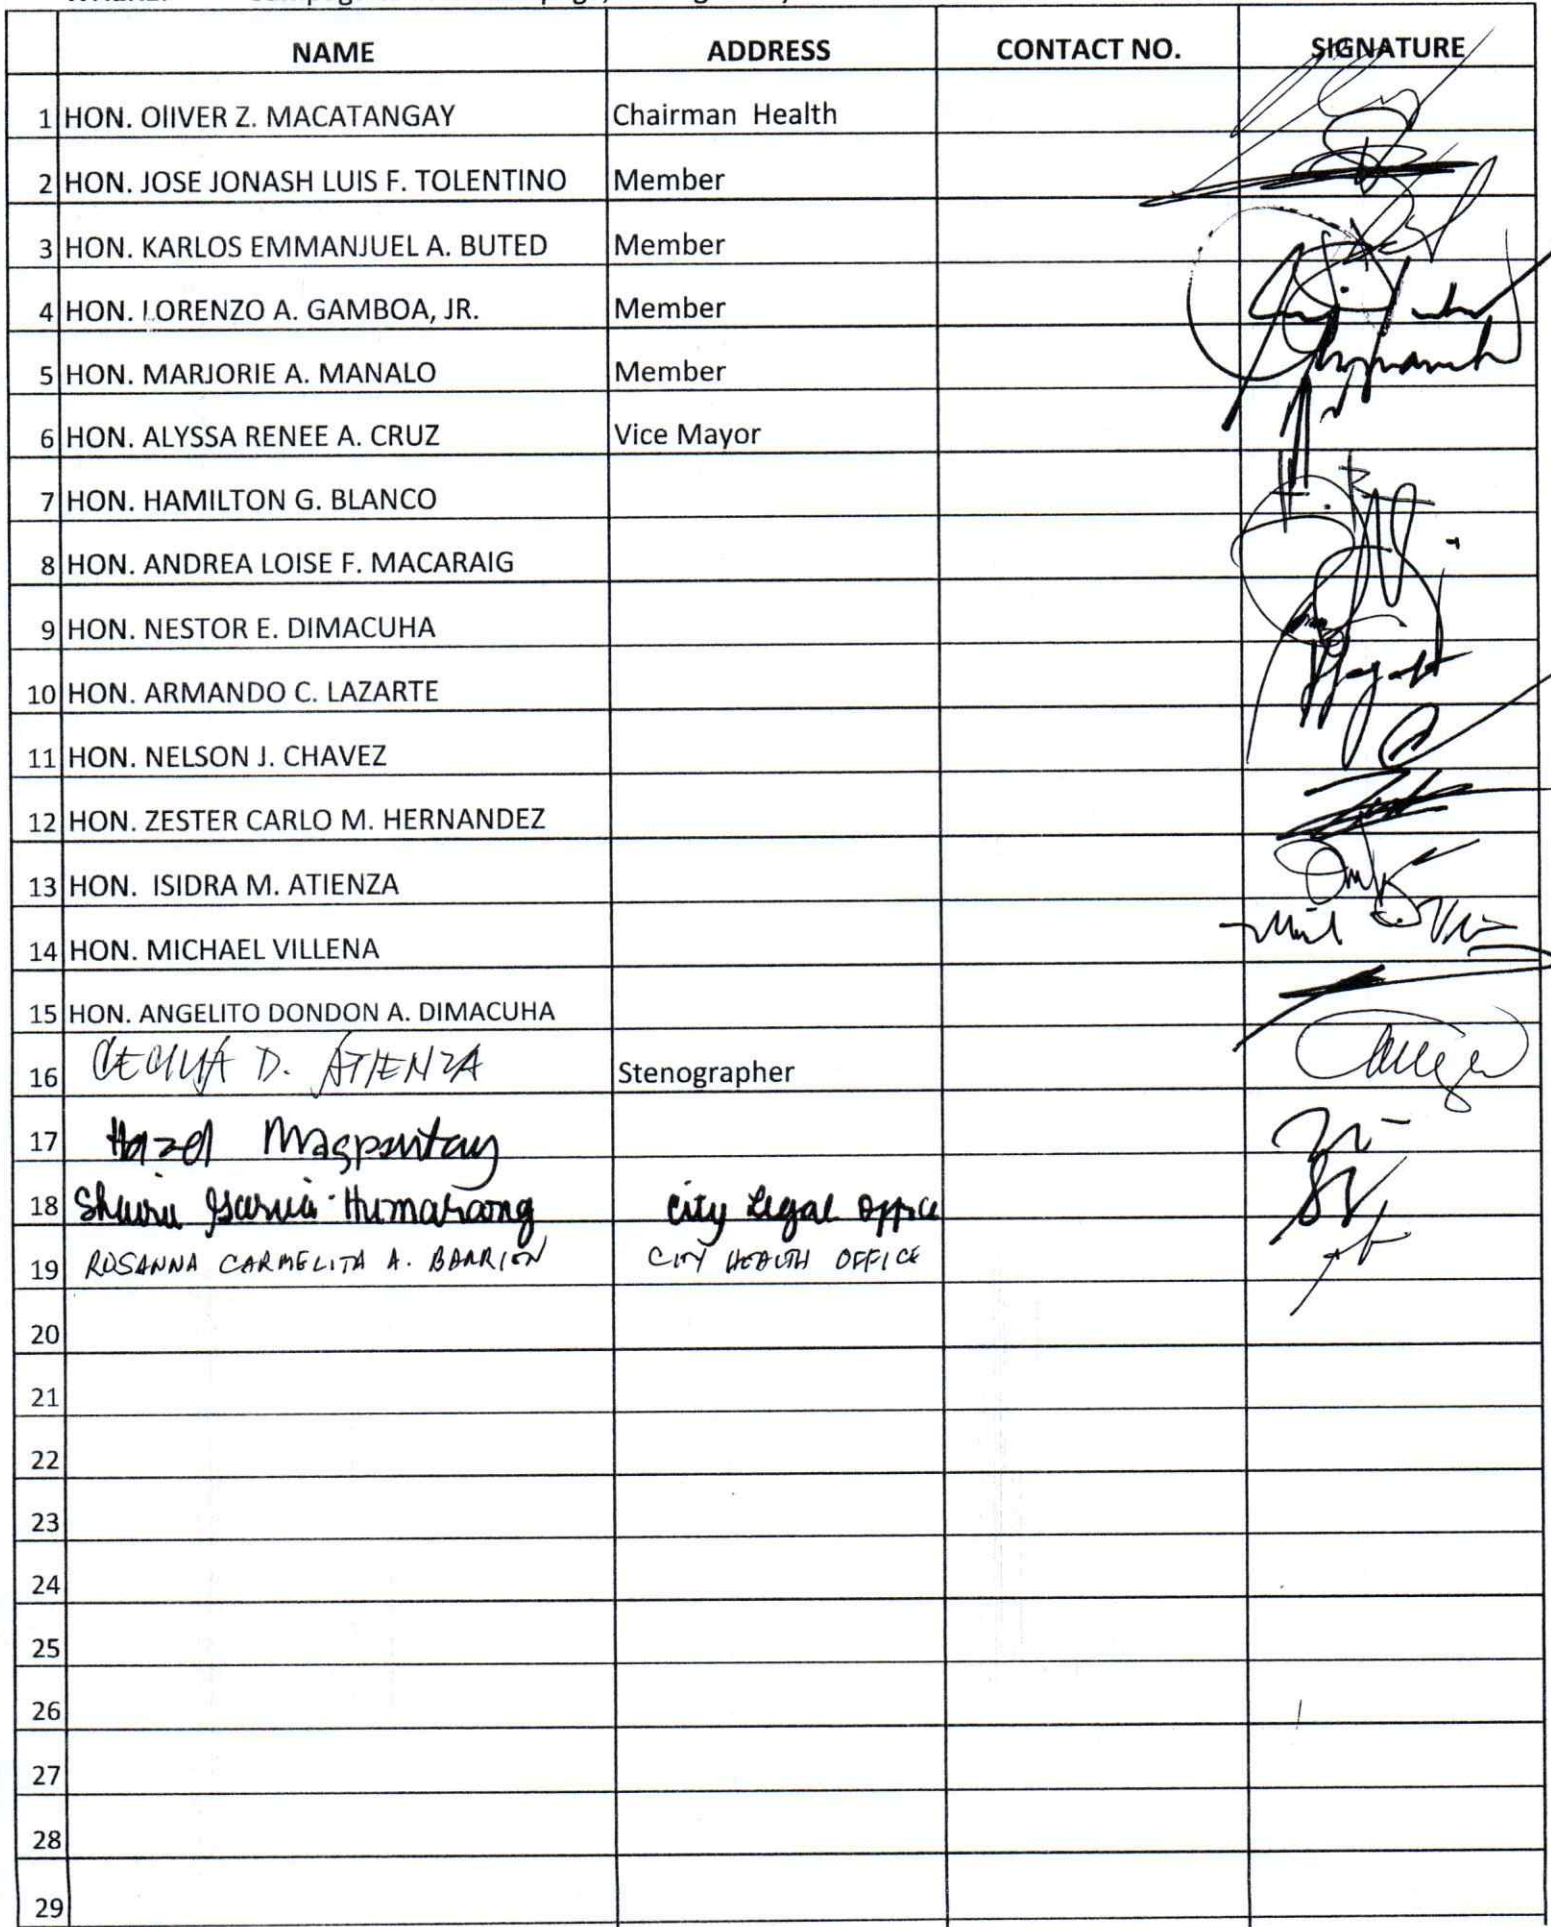 NAME ADDRESS CONTACT NO. SIGNATURE
1 HON. OlIVER Z. MACATANGAY Chairman Health
2 HON. JOSE JONASH LUIS F. TOLENTINO Member
3 HON. KARLOS EMMANJUEL A. BUTED Member
4 HON. LORENZO A. GAMBOA, JR. Member
5 HON. MARJORIE A. MANALO Member
6 HON. ALYSSA RENEE A. CRUZ Vice Mayor
7 HON. HAMILTON G. BLANCO
8 HON. ANDREA LOISE F. MACARAIG
9 HON. NESTOR E. DIMACUHA
10 HON. ARMANDO C. LAZARTE
11 HON. NELSON J. CHAVEZ
12 HON. ZESTER CARLO M. HERNANDEZ
13 HON. ISIDRA M. ATIENZA
14 HON. MICHAEL VILLENA
15 HON. ANGELITO DONDON A. DIMACUHA
16 CECILIA D. ATIENZA Stenographer
17 Hazel Magpantay
18 Garcia-Humarang City Legal Office
19 ROSANNA CARMELITA A. BARRION CITY HEALTH OFFICE
20
21
22
23
24
25
26
27
28
29